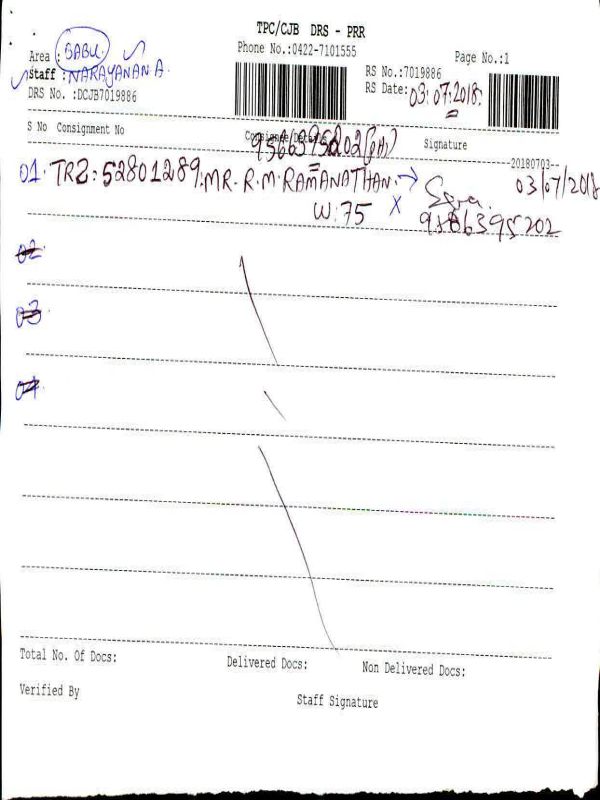 TPC/CJB DRS - PRR
Phone No.:0422-7101555
Page No.:1
Area : BABU
Staff : NARAYANAN A.
DRS No. :DCJB7019886
RS No.:7019886
RS Date: 03.07.2018.
S No Consignment No
Consignee Details
Signature
9566395202 (PH)
20180703--
01. TRZ: 52801289. MR. R.M. RAMANATHAN. →
03/07/2018
W: 75 X
9566395202
02
03
04
Total No. Of Docs:
Delivered Docs:
Non Delivered Docs:
Verified By
Staff Signature